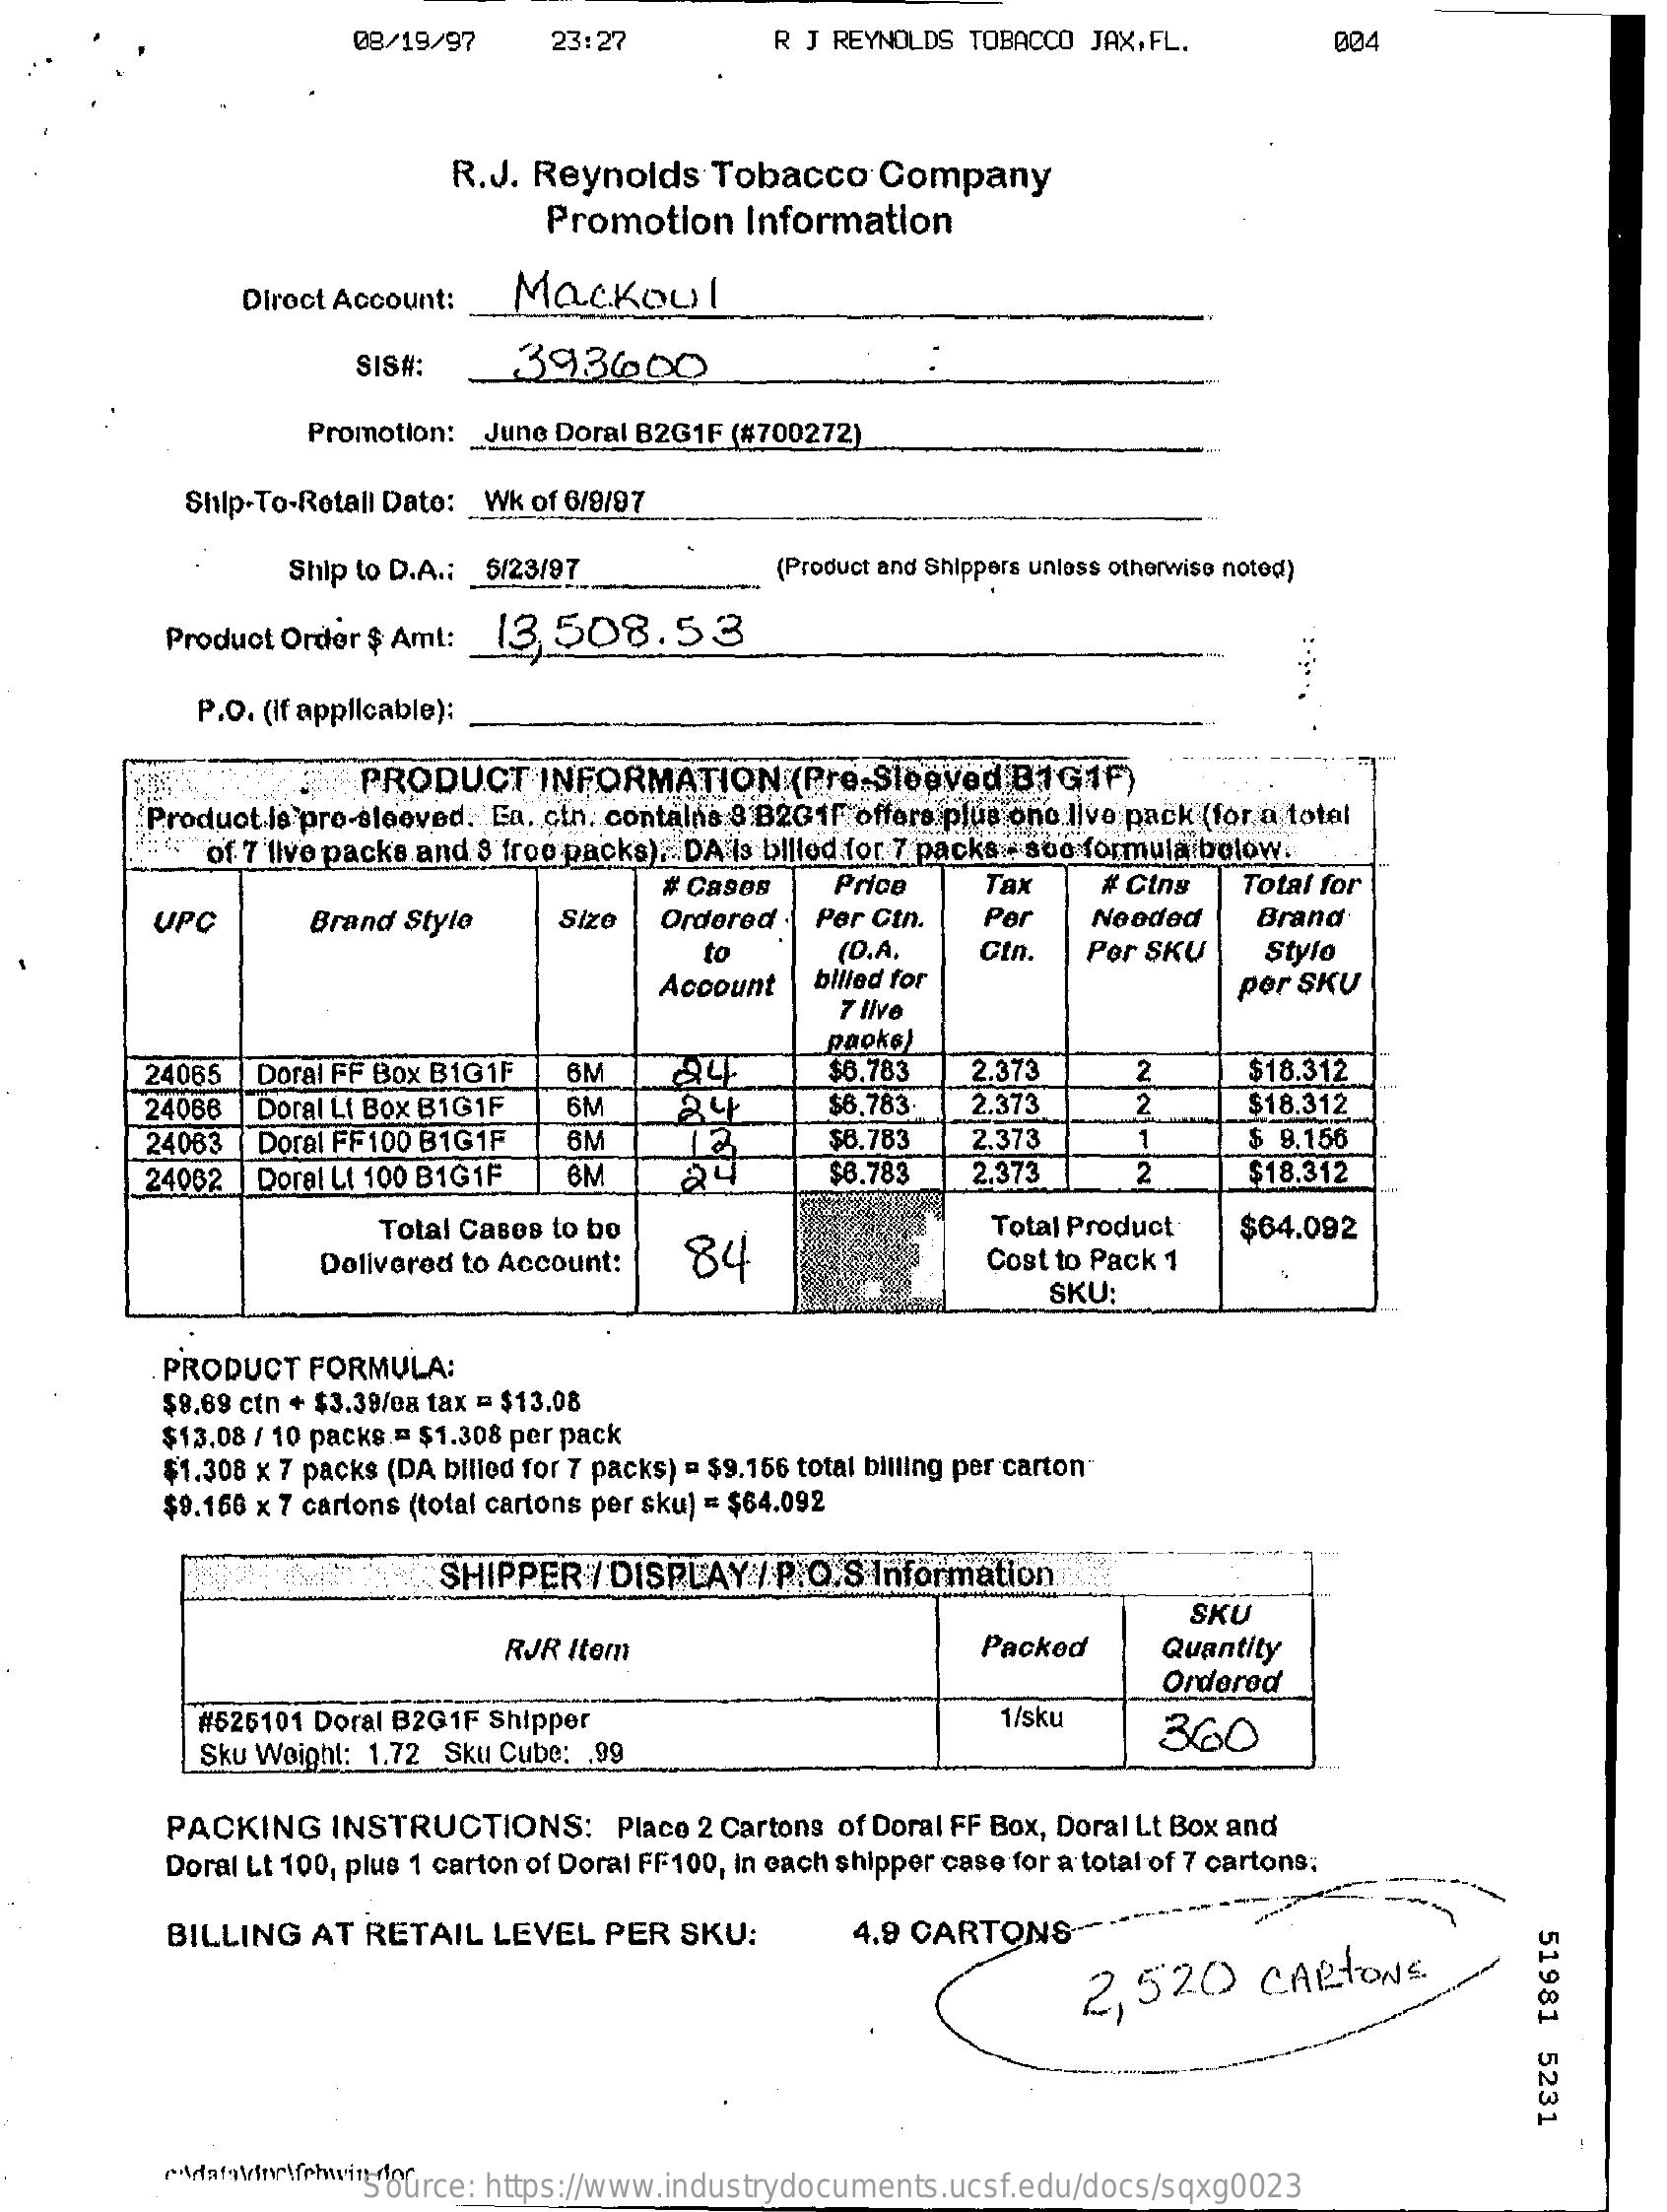 08/19/97 23:27 R J REYNOLDS TOBACCO JAX,FL. 004
R.J. Reynolds Tobacco Company
Promotion Information
Direct Account: Mackoul
SIS#: 393600
Promotion: June Doral B2G1F (#700272)
Ship-To-Retail Date: Wk of 6/9/97
Ship to D.A.: 5/23/97 (Product and Shippers unless otherwise noted)
Product Order $ Amt: 13,508.53
P.O. (if applicable):
PRODUCT INFORMATION (Pre-Sleeved B1G1F)
Product is pre-sleeved. Ea. ctn. contains 3 B2G1F offers plus one live pack (for a total
of 7 live packs and 3 free packs). DA is billed for 7 packs - see formula below.
UPC Brand Style Size # Cases Ordered to Account Price Per Ctn. (D.A. billed for 7 live packs) Tax Per Ctn. # Ctns Needed Per SKU Total for Brand Style per SKU
24065 Doral FF Box B1G1F 6M 24 $6.783 2.373 2 $18.312
24066 Doral Lt Box B1G1F 6M 24 $6.783 2.373 2 $18.312
24063 Doral FF100 B1G1F 6M 12 $6.783 2.373 1 $ 9.156
24062 Doral Lt 100 B1G1F 6M 24 $6.783 2.373 2 $18.312
Total Cases to be Delivered to Account: 84 Total Product Cost to Pack 1 SKU: $64.092
PRODUCT FORMULA:
$9.69 ctn + $3.39/ea tax = $13.08
$13.08 / 10 packs = $1.308 per pack
$1.308 x 7 packs (DA billed for 7 packs) = $9.156 total billing per carton
$9.156 x 7 cartons (total cartons per sku) = $64.092
SHIPPER / DISPLAY / P.O.S Information
RJR Item Packed SKU Quantity Ordered
#525101 Doral B2G1F Shipper 1/sku 360
Sku Weight: 1.72 Sku Cube: .99
PACKING INSTRUCTIONS: Place 2 Cartons of Doral FF Box, Doral Lt Box and
Doral Lt 100, plus 1 carton of Doral FF100, in each shipper case for a total of 7 cartons.
BILLING AT RETAIL LEVEL PER SKU: 4.9 CARTONS
2,520 CARTONS
51981 5231
c:\data\doc\febwin.doc
Source: https://www.industrydocuments.ucsf.edu/docs/sqxg0023